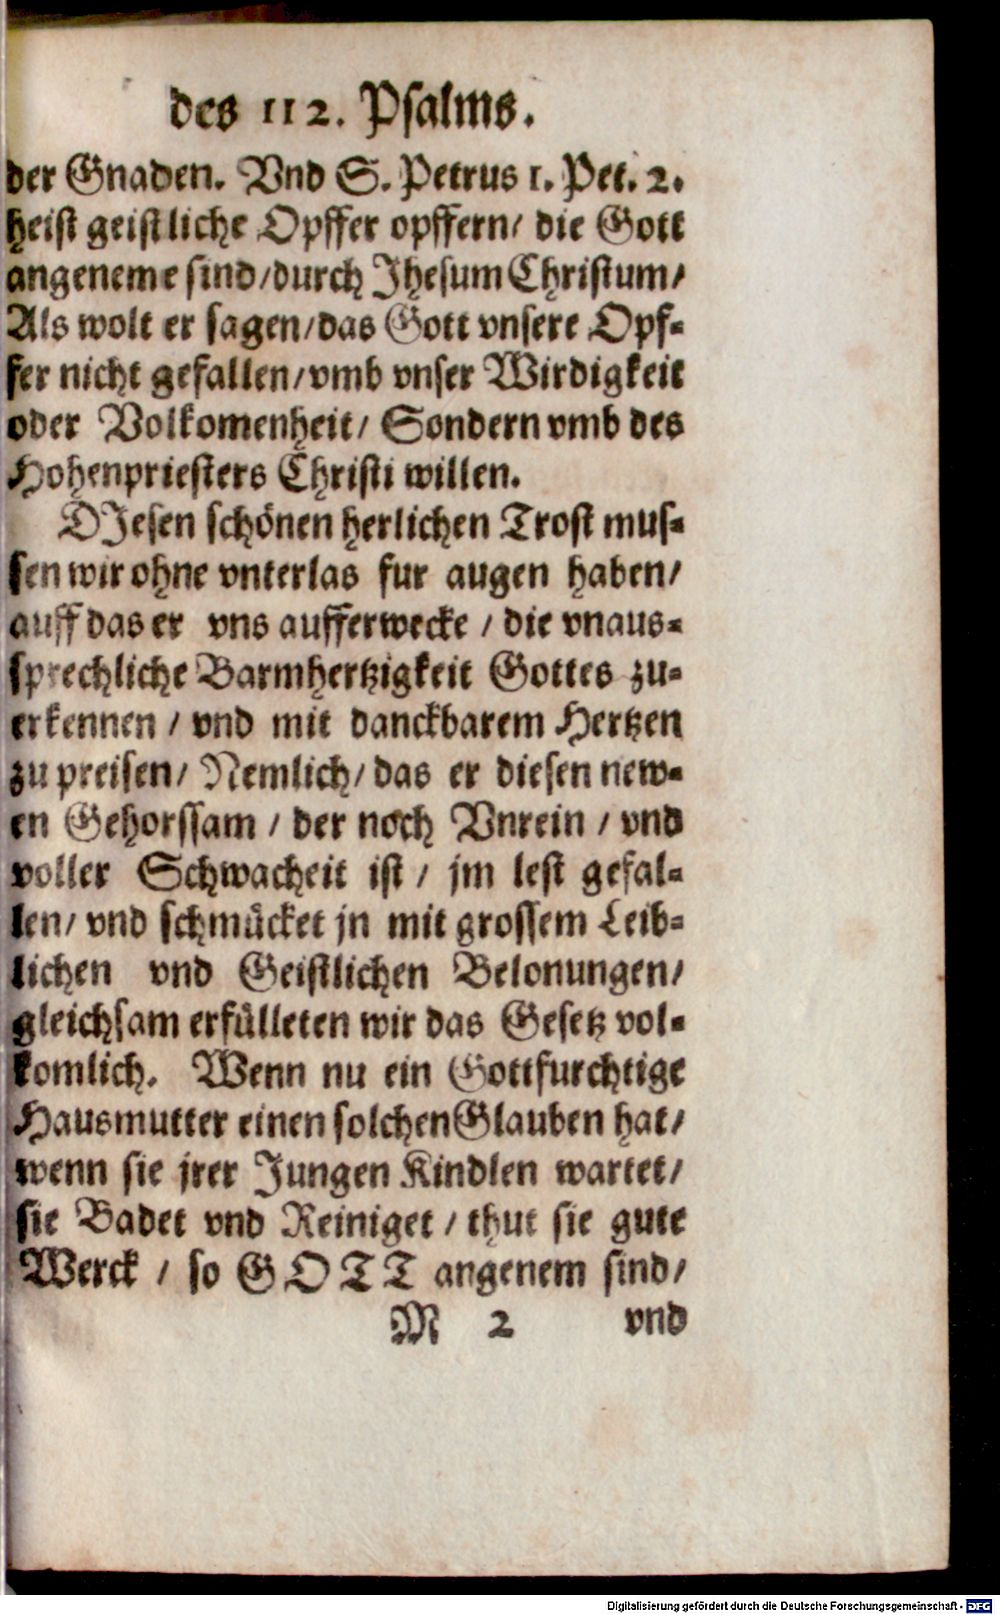 des 112. Psalms.
der Gnaden. Vnd S. Petrus 1. Pet. 2.
heist geistliche Opffer opffern/ die Gott
angeneme sind/durch Jhesum Christum/
Als wolt er sagen/das Gott vnsere Opf-
fer nicht gefallen/vmb vnser Wirdigkeit
oder Volkomenheit/ Sondern vmb des
Hohenpriesters Christi willen.
DJesen schönen herlichen Trost mus-
sen wir ohne vnterlas fur augen haben/
auff das er vns aufferwecke / die vnaus-
sprechliche Barmhertzigkeit Gottes zu-
erkennen / vnd mit danckbarem Hertzen
zu preisen/ Nemlich/ das er diesen new-
en Gehorssam / der noch Vnrein / vnd
voller Schwacheit ist / jm lest gefal-
len/ vnd schmücket jn mit grossem Leib-
lichen vnd Geistlichen Belonungen/
gleichsam erfülleten wir das Gesetz vol-
komlich. Wenn nu ein Gottfurchtige
Hausmutter einen solchen Glauben hat/
wenn sie jrer Jungen Kindlen wartet/
sie Badet vnd Reiniget / thut sie gute
Werck / so GOTT angenem sind/
M 2 vnd
Digitalisierung gefördert durch die Deutsche Forschungsgemeinschaft - DFG